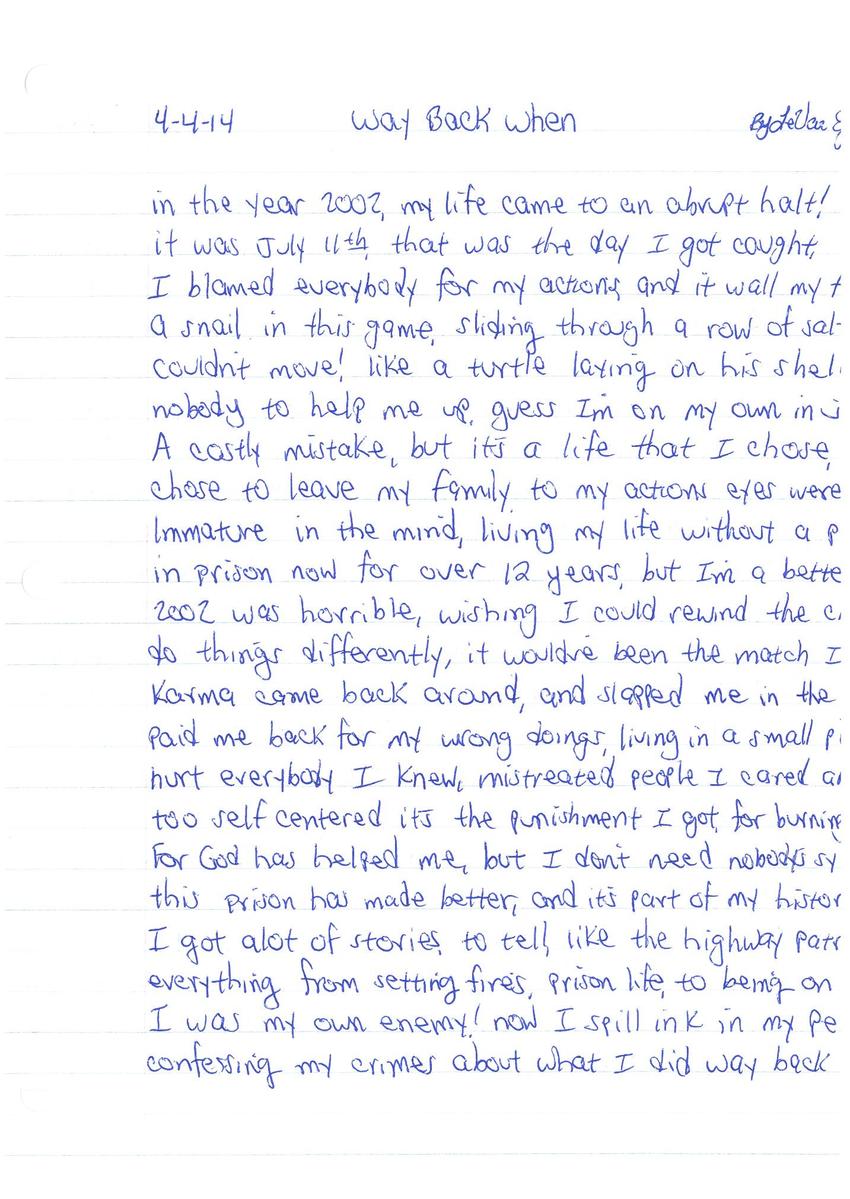 4-4-14 Way Back When By LeVar
in the year 2002, my life came to an abrupt halt!
it was July 11th, that was the day I got caught,
I blamed everybody for my actions, and it wall my f
a snail in this game, sliding through a row of sal
couldn't move! like a turtle laying on his shel
nobody to help me up, guess I'm on my own in
A costly mistake, but it's a life that I chose,
chose to leave my family, to my actions eyes were
Immature in the mind, living my life without a p
in prison now for over 12 years, but I'm a bette
2002 was horrible, wishing I could rewind the c
do things differently, it would've been the match I
Karma came back around, and slapped me in the
paid me back for my wrong doings, living in a small p
hurt everybody I knew, mistreated people I cared a
too self centered it's the punishment I got, for burnin
For God has helped me, but I don't need nobody's sy
this prison has made better, and it's part of my histor
I got alot of stories, to tell, like the highway patr
everything from setting fires, prison life, to being on
I was my own enemy! now I spill ink in my pe
confessing my crimes about what I did way back